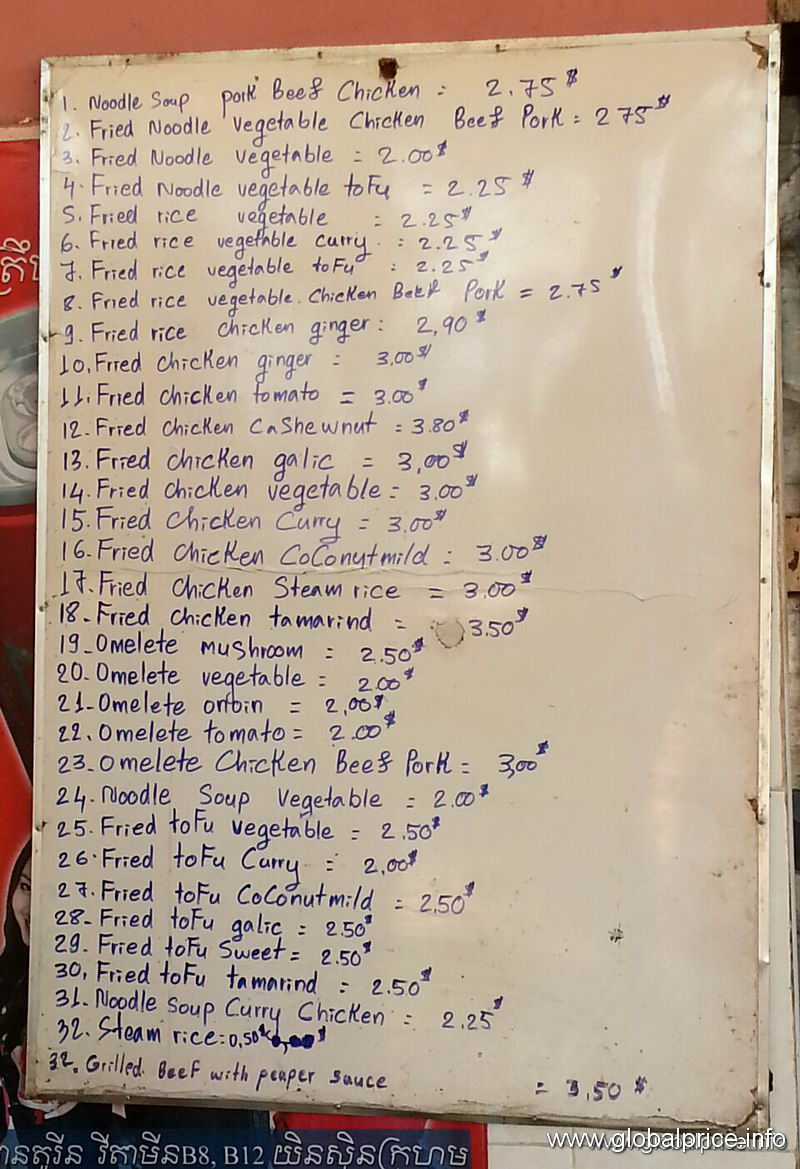 1. Noodle Soup pork Beef Chicken = 2.75$
2. Fried Noodle vegetable Chicken Beef Pork = 2 75$
3. Fried Noodle vegetable = 2.00$
4. Fried Noodle vegetable toFu = 2.25$
5. Fried rice vegetable = 2.25$
6. Fried rice vegetable curry = 2.25$
7. Fried rice vegetable toFu : 2.25$
8. Fried rice vegetable. Chicken Beef Pork = 2.75$
9. Fried rice chicken ginger: 2,90$
10. Fried chicken ginger = 3,00$
11. Fried chicken tomato = 3.00$
12. Fried chicken Cashewnut = 3.80$
13. Fried chicken galic = 3,00$
14. Fried Chicken vegetable = 3,00$
15. Fried Chicken Curry = 3.00$
16. Fried Chicken CoConutmild = 3.00$
17. Fried Chicken Steam rice = 3,00$
18. Fried chicken tamarind = 3.50$
19. Omelete mushroom = 2.50$
20. Omelete vegetable = 2.00$
21. Omelete onbin = 2,00$
22. Omelete tomato = 2.00$
23. Omelete Chicken Beef Pork = 3,00$
24. Noodle Soup Vegetable = 2.00$
25. Fried toFu vegetable = 2.50$
26. Fried toFu Curry = 2,00$
27. Fried toFu CoConutmild = 2,50$
28. Fried toFu galic = 2.50$
29. Fried toFu Sweet = 2.50$
30, Fried toFu tamarind = 2.50$
31. Noodle Soup Curry Chicken = 2,25$
32. Steam rice = 0,50$
32. Grilled Beef with peaper sauce = 3,50 $
B8, B12
www.globalprice.info